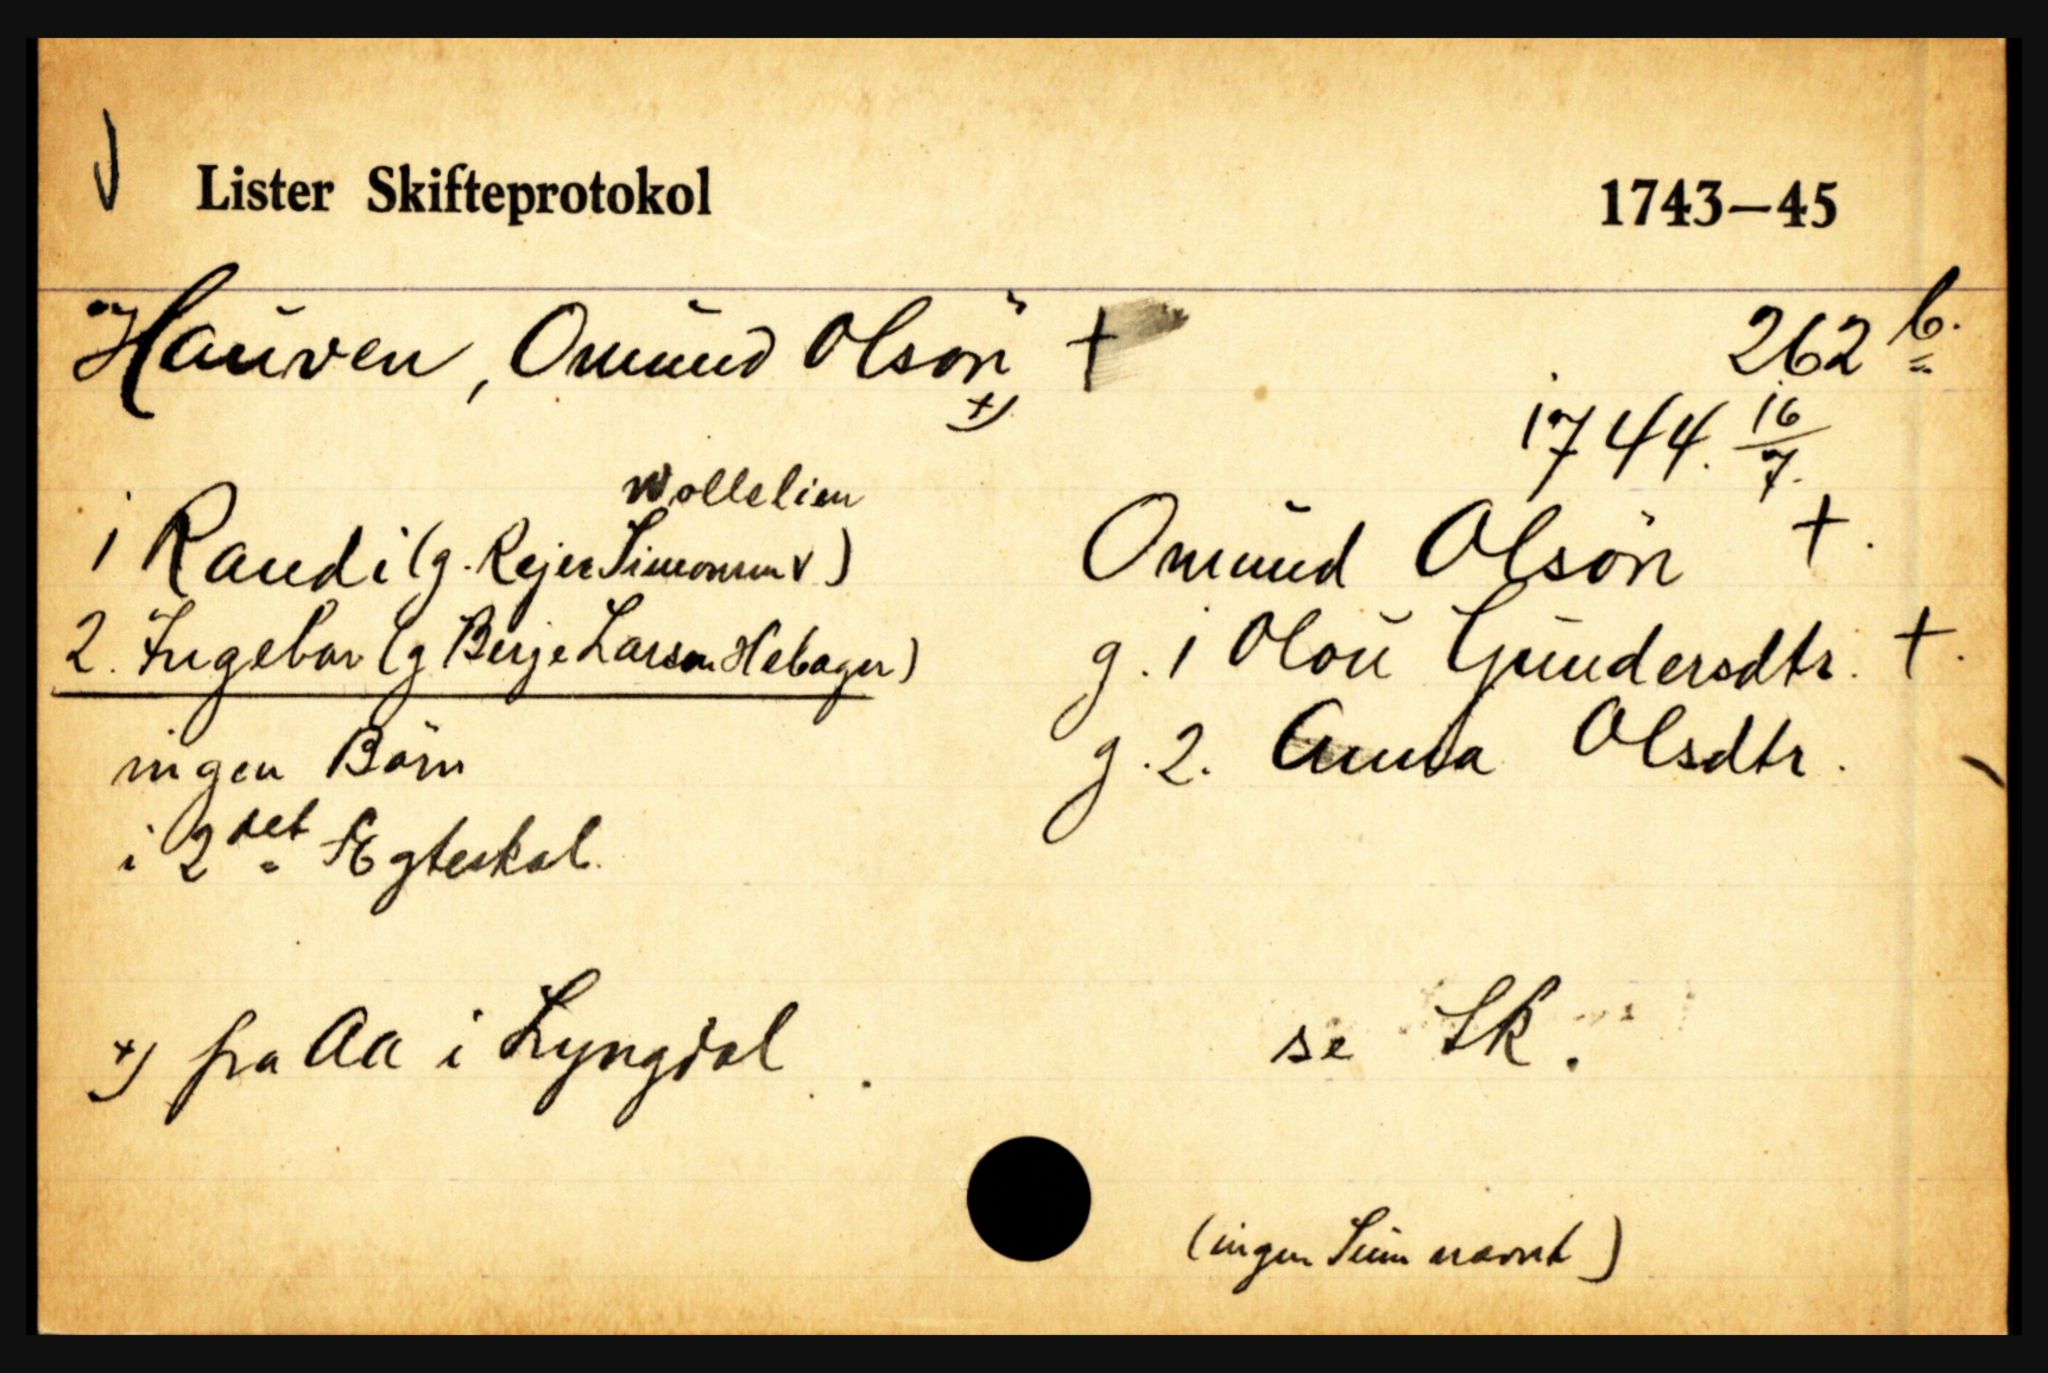 Lister Skifteprotokol 1743–45
Hauven, Omund Olsön † 262 b.
+)
1744. 16/7.
Wollelien
1 Randi (g. Rejer Simonsen v) Omund Olsön †.
2. Ingebor (g Berje Larsen Hebager) g. 1 Olou Gundersdtr. †.
ingen Börn g. 2. Anna Olsdtr.
i 2det Ægteskab.
+) fra Aa i Lyngdal. se Sk.
(ingen Sum nævnt)